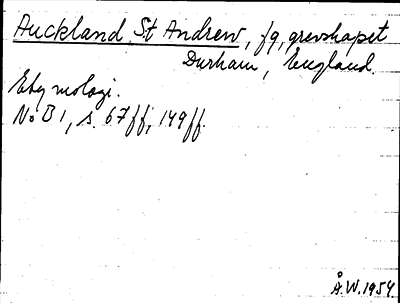 Auckland St Andrew, fg, grevskapet
Durham, England.
Etymologi.
NoB 1, s. 67ff, 149ff.
Å.W. 1954.